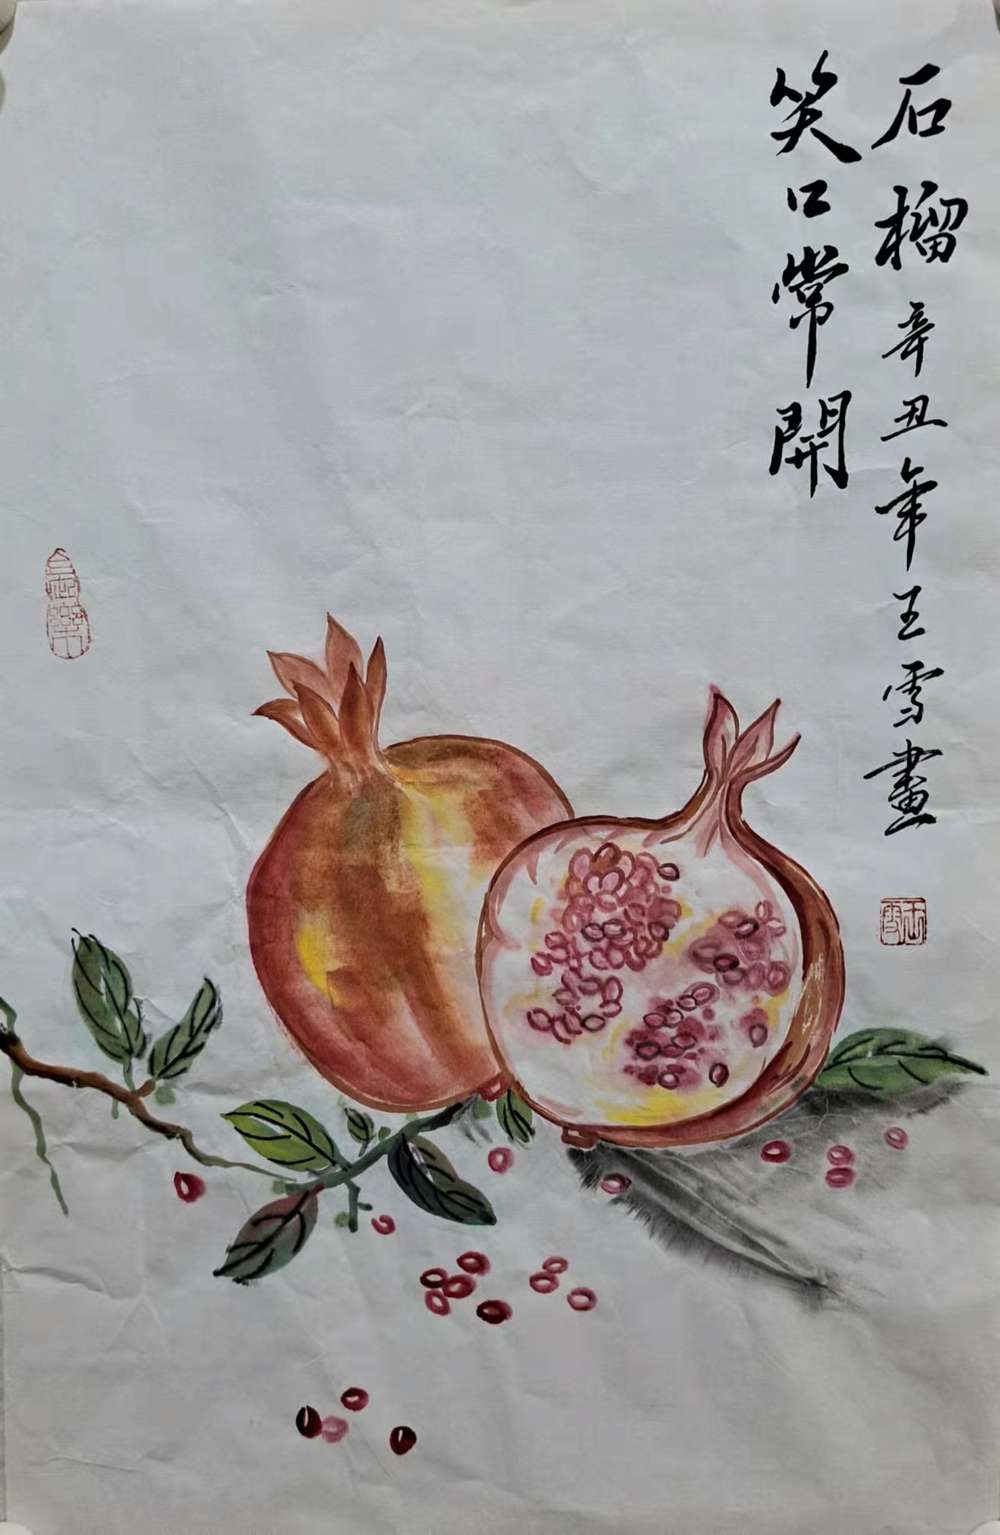 石榴辛丑年王雪畫
笑口常開
王雪